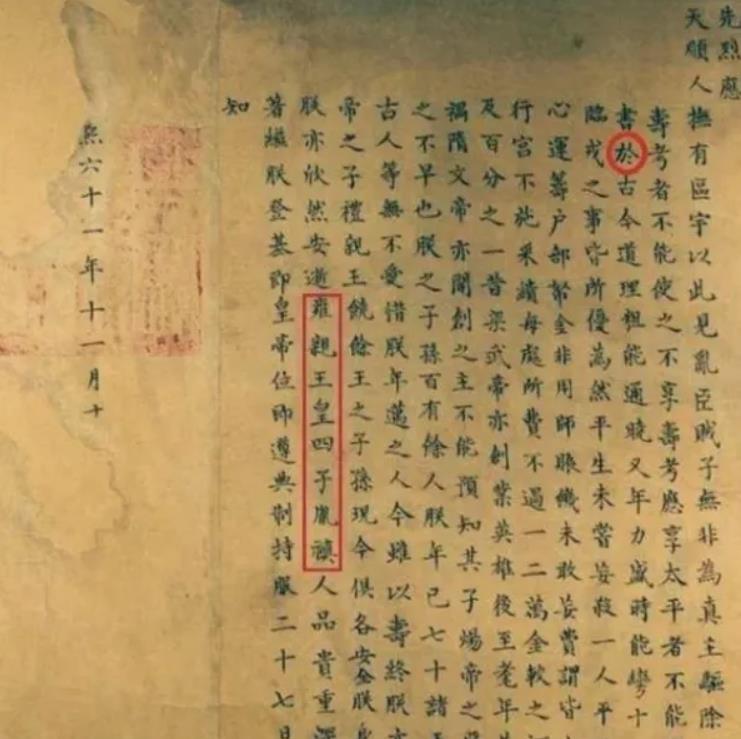 先烈應
天順人撫有區宇以此見亂臣賊子無非為真主驅除
壽考者不能使之不享壽考應享太平者不能
書於古今道理粗能通曉又年力盛時能彎十
臨戎之事皆所優為然平生未嘗妄殺一人平
心運籌户部帑金非用師賑饑未敢妄費謂皆
行宮不施采繢每處所費不過一二萬金較之
及百分之一昔梁武帝亦創業英雄後至耄年
禍隋文帝亦開創之主不能預知其子煬帝之
之不早也朕之子孫百有餘人朕年已七十諸王
古人等無不愛惜朕年邁之人今雖以壽終朕亦
帝之子禮親王饒餘王之子孫現今俱各安全朕身
朕亦欣然安逝雍親王皇四子胤禛人品貴重深
著繼朕登基即皇帝位即遵典制持服二十七日
知
熙六十一年十一月十